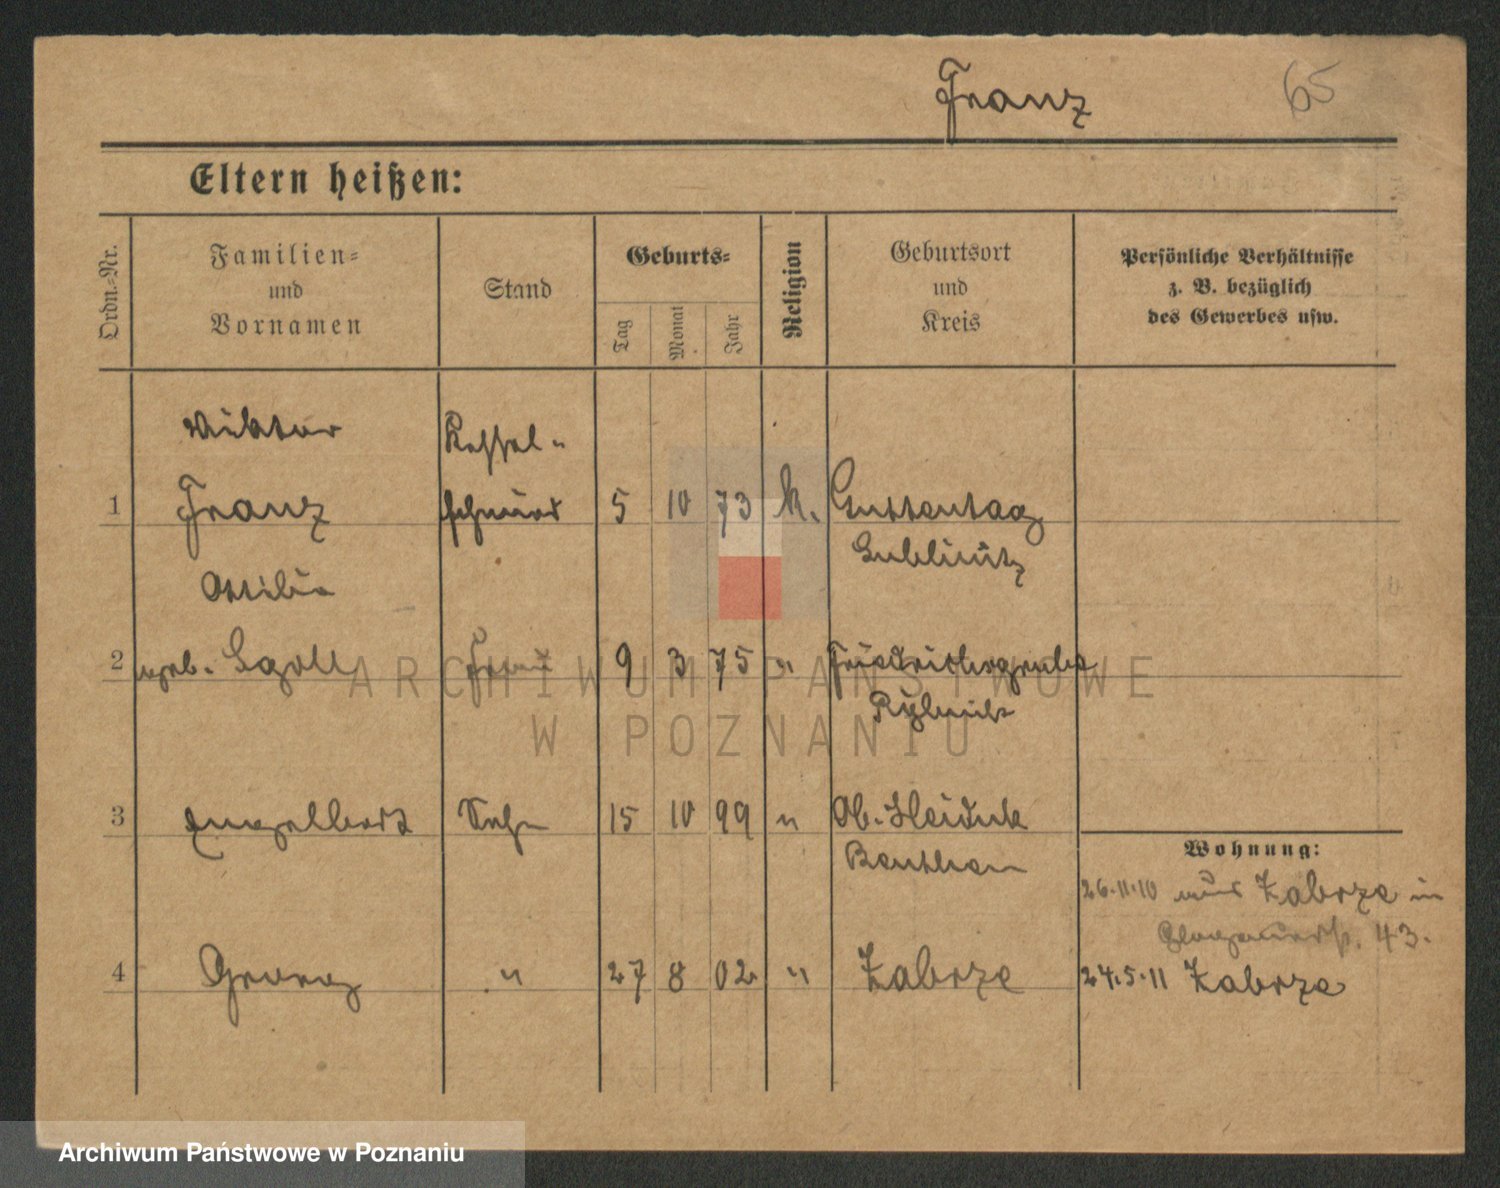 Franz 65
Eltern heißen:
Ordn.-Nr.
Familien-
und
Vornamen
Stand
Geburts-
Tag
Monat
Jahr
Religion
Geburtsort
und
Kreis
Persönliche Verhältnisse
z. B. bezüglich
des Gewerbes usw.
Viktor Kessel-
1 Franz schmied 5 10 73 k. Guttentag
Lublinitz
Ottilie
2 geb. Frau 9 3 75 " Friedrichsgrube
Rybnik
3 Engelbert Sohn 15 10 99 " Ob. Heiduk
Beuthen
4 Georg " 27 8 02 " Zabrze
Wohnung:
26.11.10 aus Zabrze in
Glogauerstr. 43.
24.5.11 Zabrze
ARCHIWUM PAŃSTWOWE
W POZNANIU
Archiwum Państwowe w Poznaniu